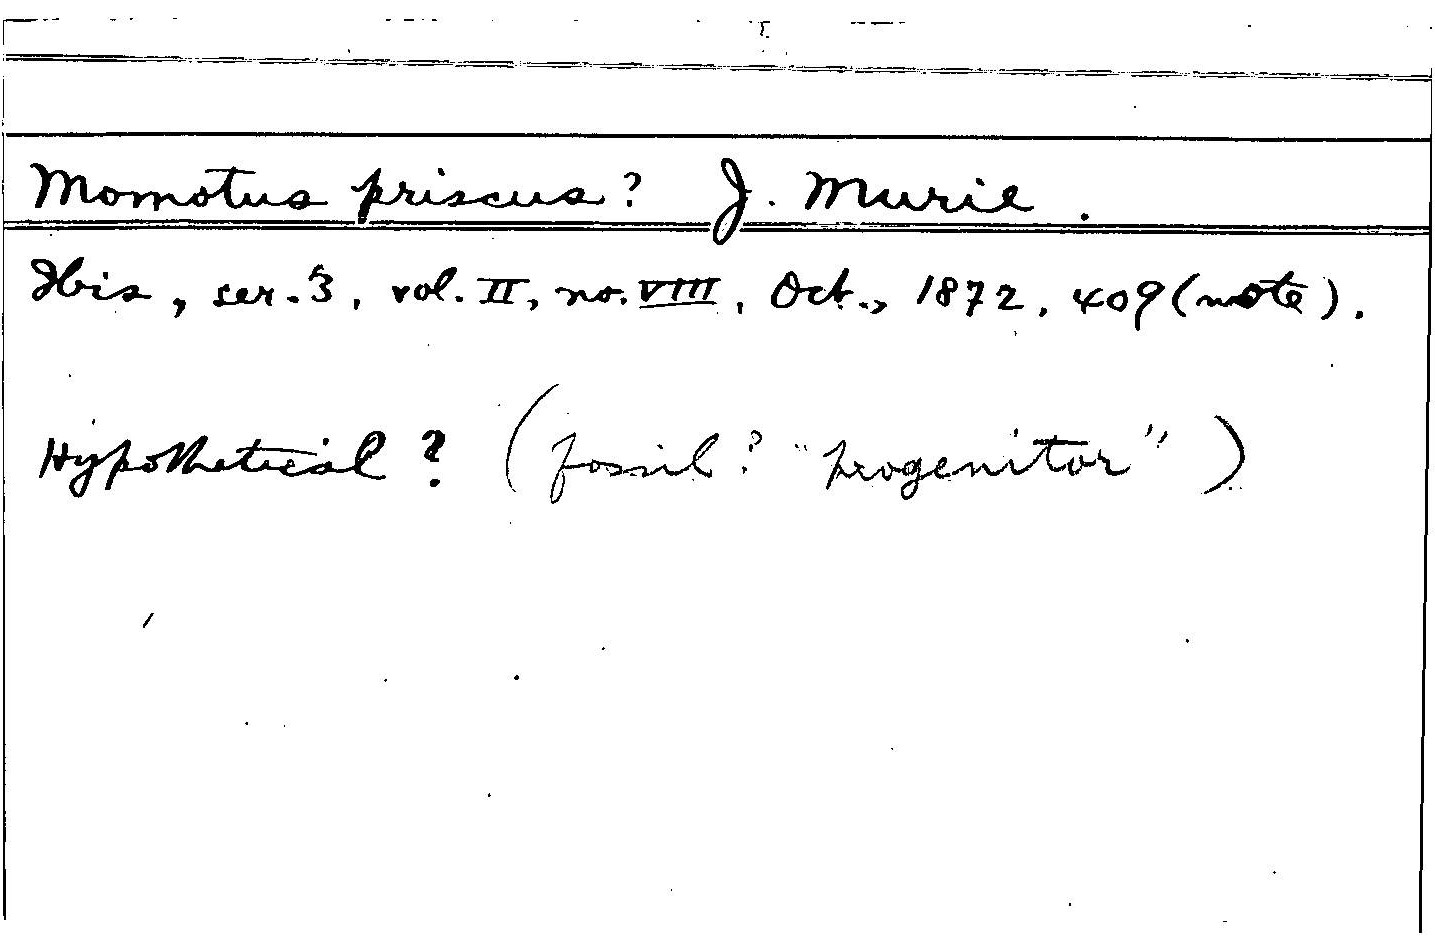 Momotus priscus? J. Murie.
Ibis, ser. 3, vol. II, no. VIII, Oct., 1872, 409 (note).
Hypothetical? (fossil? "progenitor")